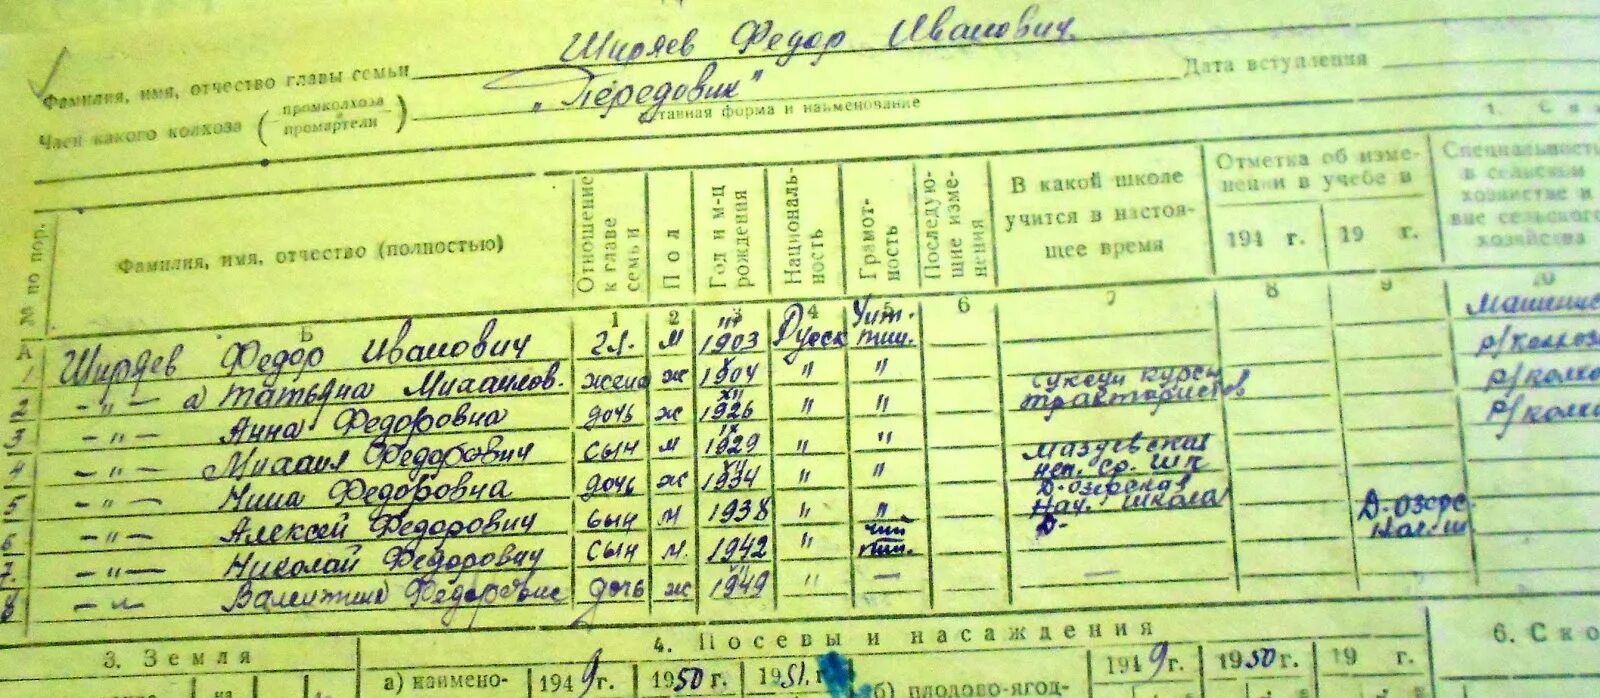 Ширяев Федор Иванович.
Фамилия, имя, отчество главы семьи
Дата вступления
„Передовик"
Член какого колхоза ( промколхоза / промартели )
тавная форма и наименование
1. Св
№№ по пор.
Фамилия, имя, отчество (полностью)
Отношение к главе семьи
Пол
Год и м-ц рождения
Националь-ность
Грамот-ность
Последую-щие изме-нения
В какой школе учится в настоя-щее время
Отметка об изме-нении в учебе в
194 г.
19 г.
Специальность в сельском хозяйстве и вне сельского хозяйства
А Б 1 2 3 4 5 6 7 8 9 10
1 Ширяев Федор Иванович гл. м 1903 Русск чит. пиш. Машинис
2 -"- а) Татьяна Михайлов. жена ж X 1904 " " р/колхоз
3 -"- Анна Федоровна дочь ж XII 1926 " " курсы трактористов р/колхо
4 -"- Михаил Федорович сын м IX 1929 " " р/колхо
5 -"- Нина Федоровна дочь ж 1934 " " Мазуевская неп. ср. шк
6 -"- Алексей Федорович сын м 1938 " " Д-озерская нач. школа
7. -"- Николай Федорович сын м. 1942 " чит пиш. Д- Д-озерс. нач. ш
8 -"- Валентина Федоровна дочь ж 1949 " — —
3. Земля
4. Посевы и насаждения
6. Ско
а) наимено-
1949 г.
1950 г.
1951. г
б) плодово-ягод-
1949 г.
1950 г.
19 г.